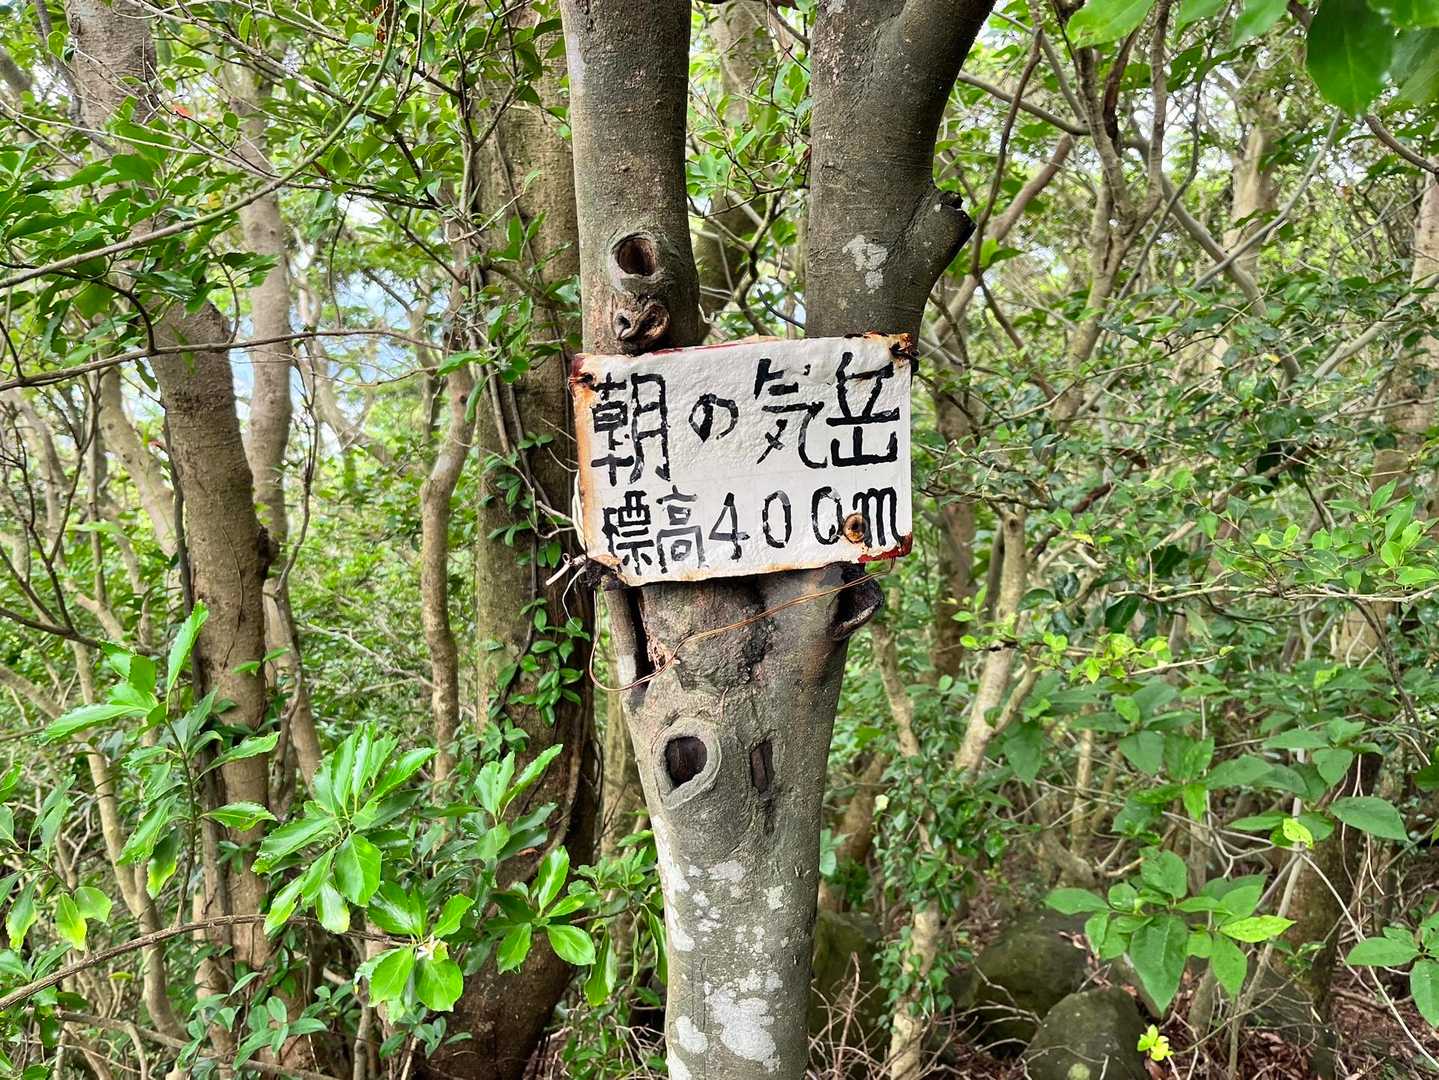 朝の気岳
標高400m